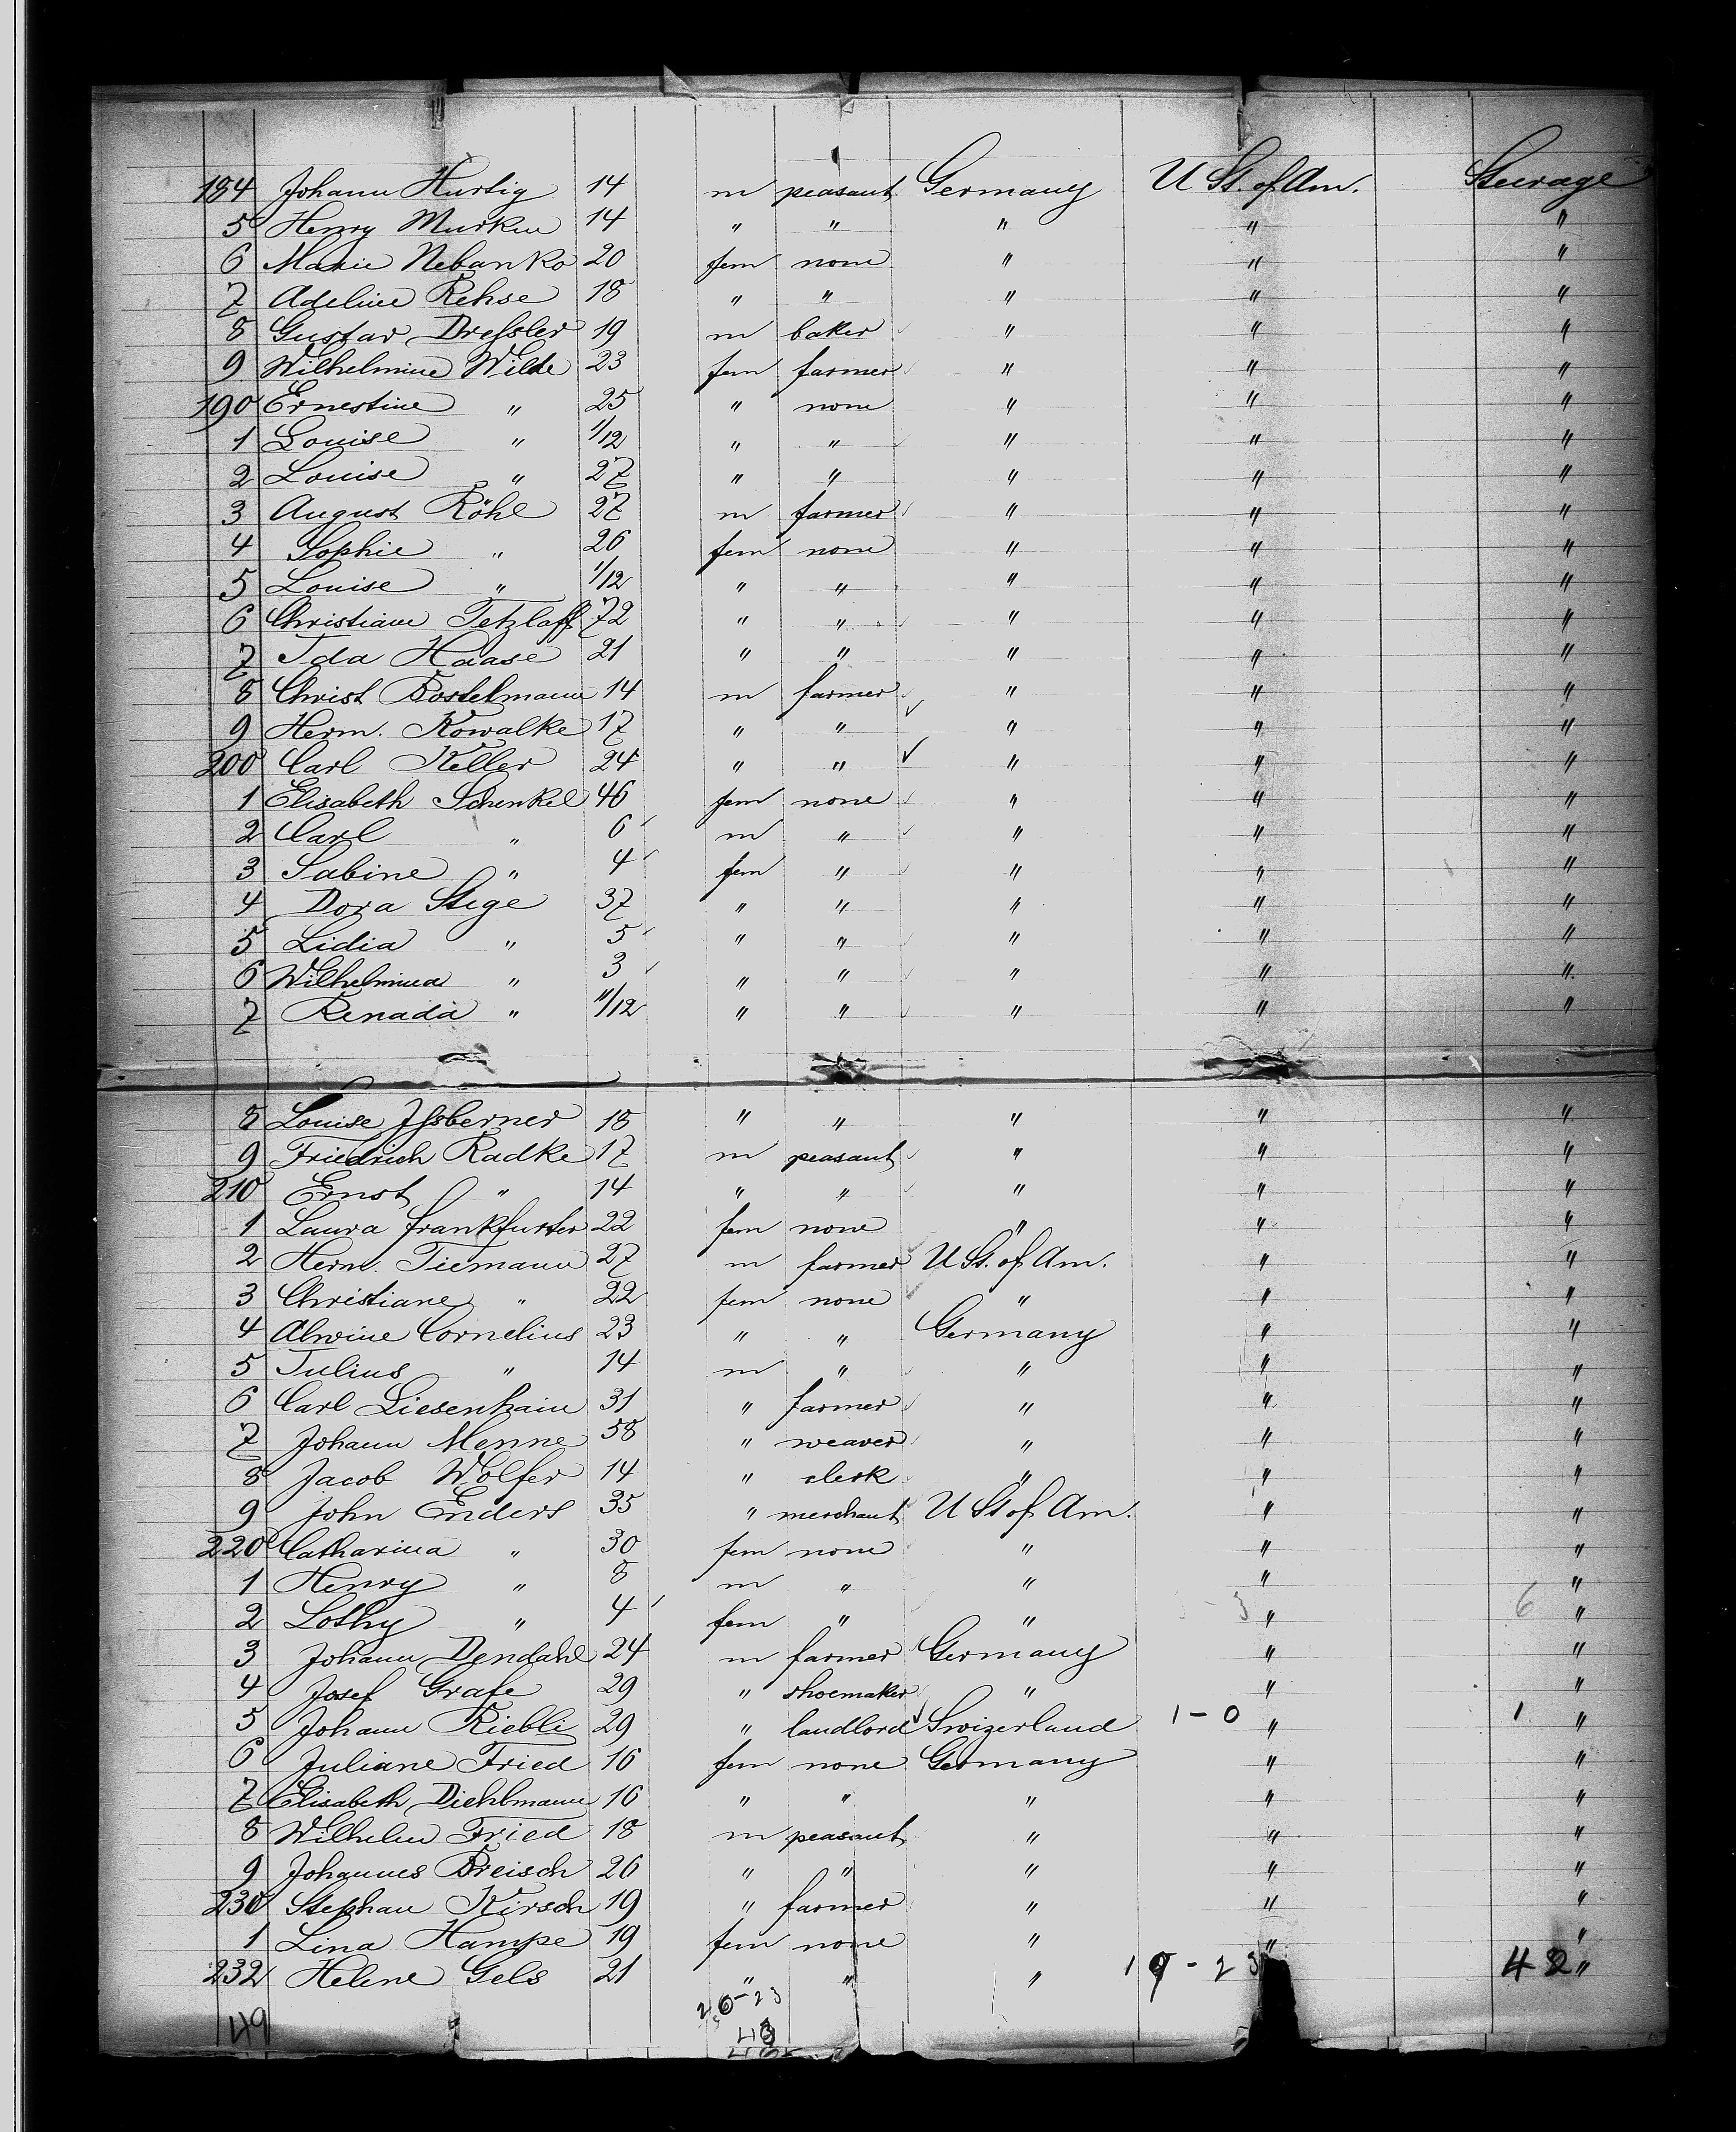 184 Johann Hurtig 14 m peasant Germany U St. of Am. Steerage
5 Henry Murken 14 " " " " "
6 Marie Nebanko 20 fem none " " "
7 Adeline Rehse 18 " " " " "
8 Gustav Dreßler 19 m baker " " "
9 Wilhelmine Wilde 23 fem farmer " " "
190 Ernestine " 25 " none " " "
1 Louise " 1/12 " " " " "
2 Louise " 27 " " " " "
3 August Röhl 27 m farmer " " "
4 Sophie " 26 fem none " " "
5 Louise " 1/12 " " " " "
6 Christiane Tetzlaff 72 " " " " "
7 Ida Haase 21 " " " " "
8 Christ Bostelmann 14 m farmer " " "
9 Herm. Kowalke 17 " " " " "
200 Carl Keller 24 " " " " "
1 Elisabeth Schenkel 46 fem none " " "
2 Carl " 6 m " " " "
3 Sabine " 4 fem " " " "
4 Dora Stege 37 " " " " "
5 Lidia " 5 " " " " "
6 Wilhelmina " 3 " " " " "
7 Renada " 11/12 " " " " "
8 Louise Ißberner 18 " " " " "
9 Friedrich Radke 17 m peasant " " "
210 Ernst " 14 " " " " "
1 Laura Frankfurter 22 fem none " " "
2 Herm. Tiemann 27 m farmer U St. of Am. " "
3 Christiane " 22 fem none " " "
4 Alwine Cornelius 23 " " Germany " "
5 Julius " 14 m " " " "
6 Carl Liesenhain 31 " farmer " " "
7 Johann Menne 58 " weaver " " "
8 Jacob Wolfer 14 " clerk " " "
9 John Enders 35 " merchant U St of Am. " "
220 Catharina " 30 fem none " " "
1 Henry " 8 m " " " "
2 Lothy " 4 fem " " " 6 "
3 Johann Dendahl 24 m farmer Germany " "
4 Josef Grafe 29 " shoemaker " " "
5 Johann Riebli 29 " landlord Swizerland 1-0 " 1 "
6 Juliane Fried 16 fem none Germany " "
7 Elisabeth Diehlmann 16 " " " " "
8 Wilhelm Fried 18 m peasant " " "
9 Johannes Breisch 26 " " " " "
230 Stephan Kirsch 19 " farmer " " "
1 Lina Hampe 19 fem none " " "
232 Helene Gels 21 " " " 19-23 " 42 "
26-23
49